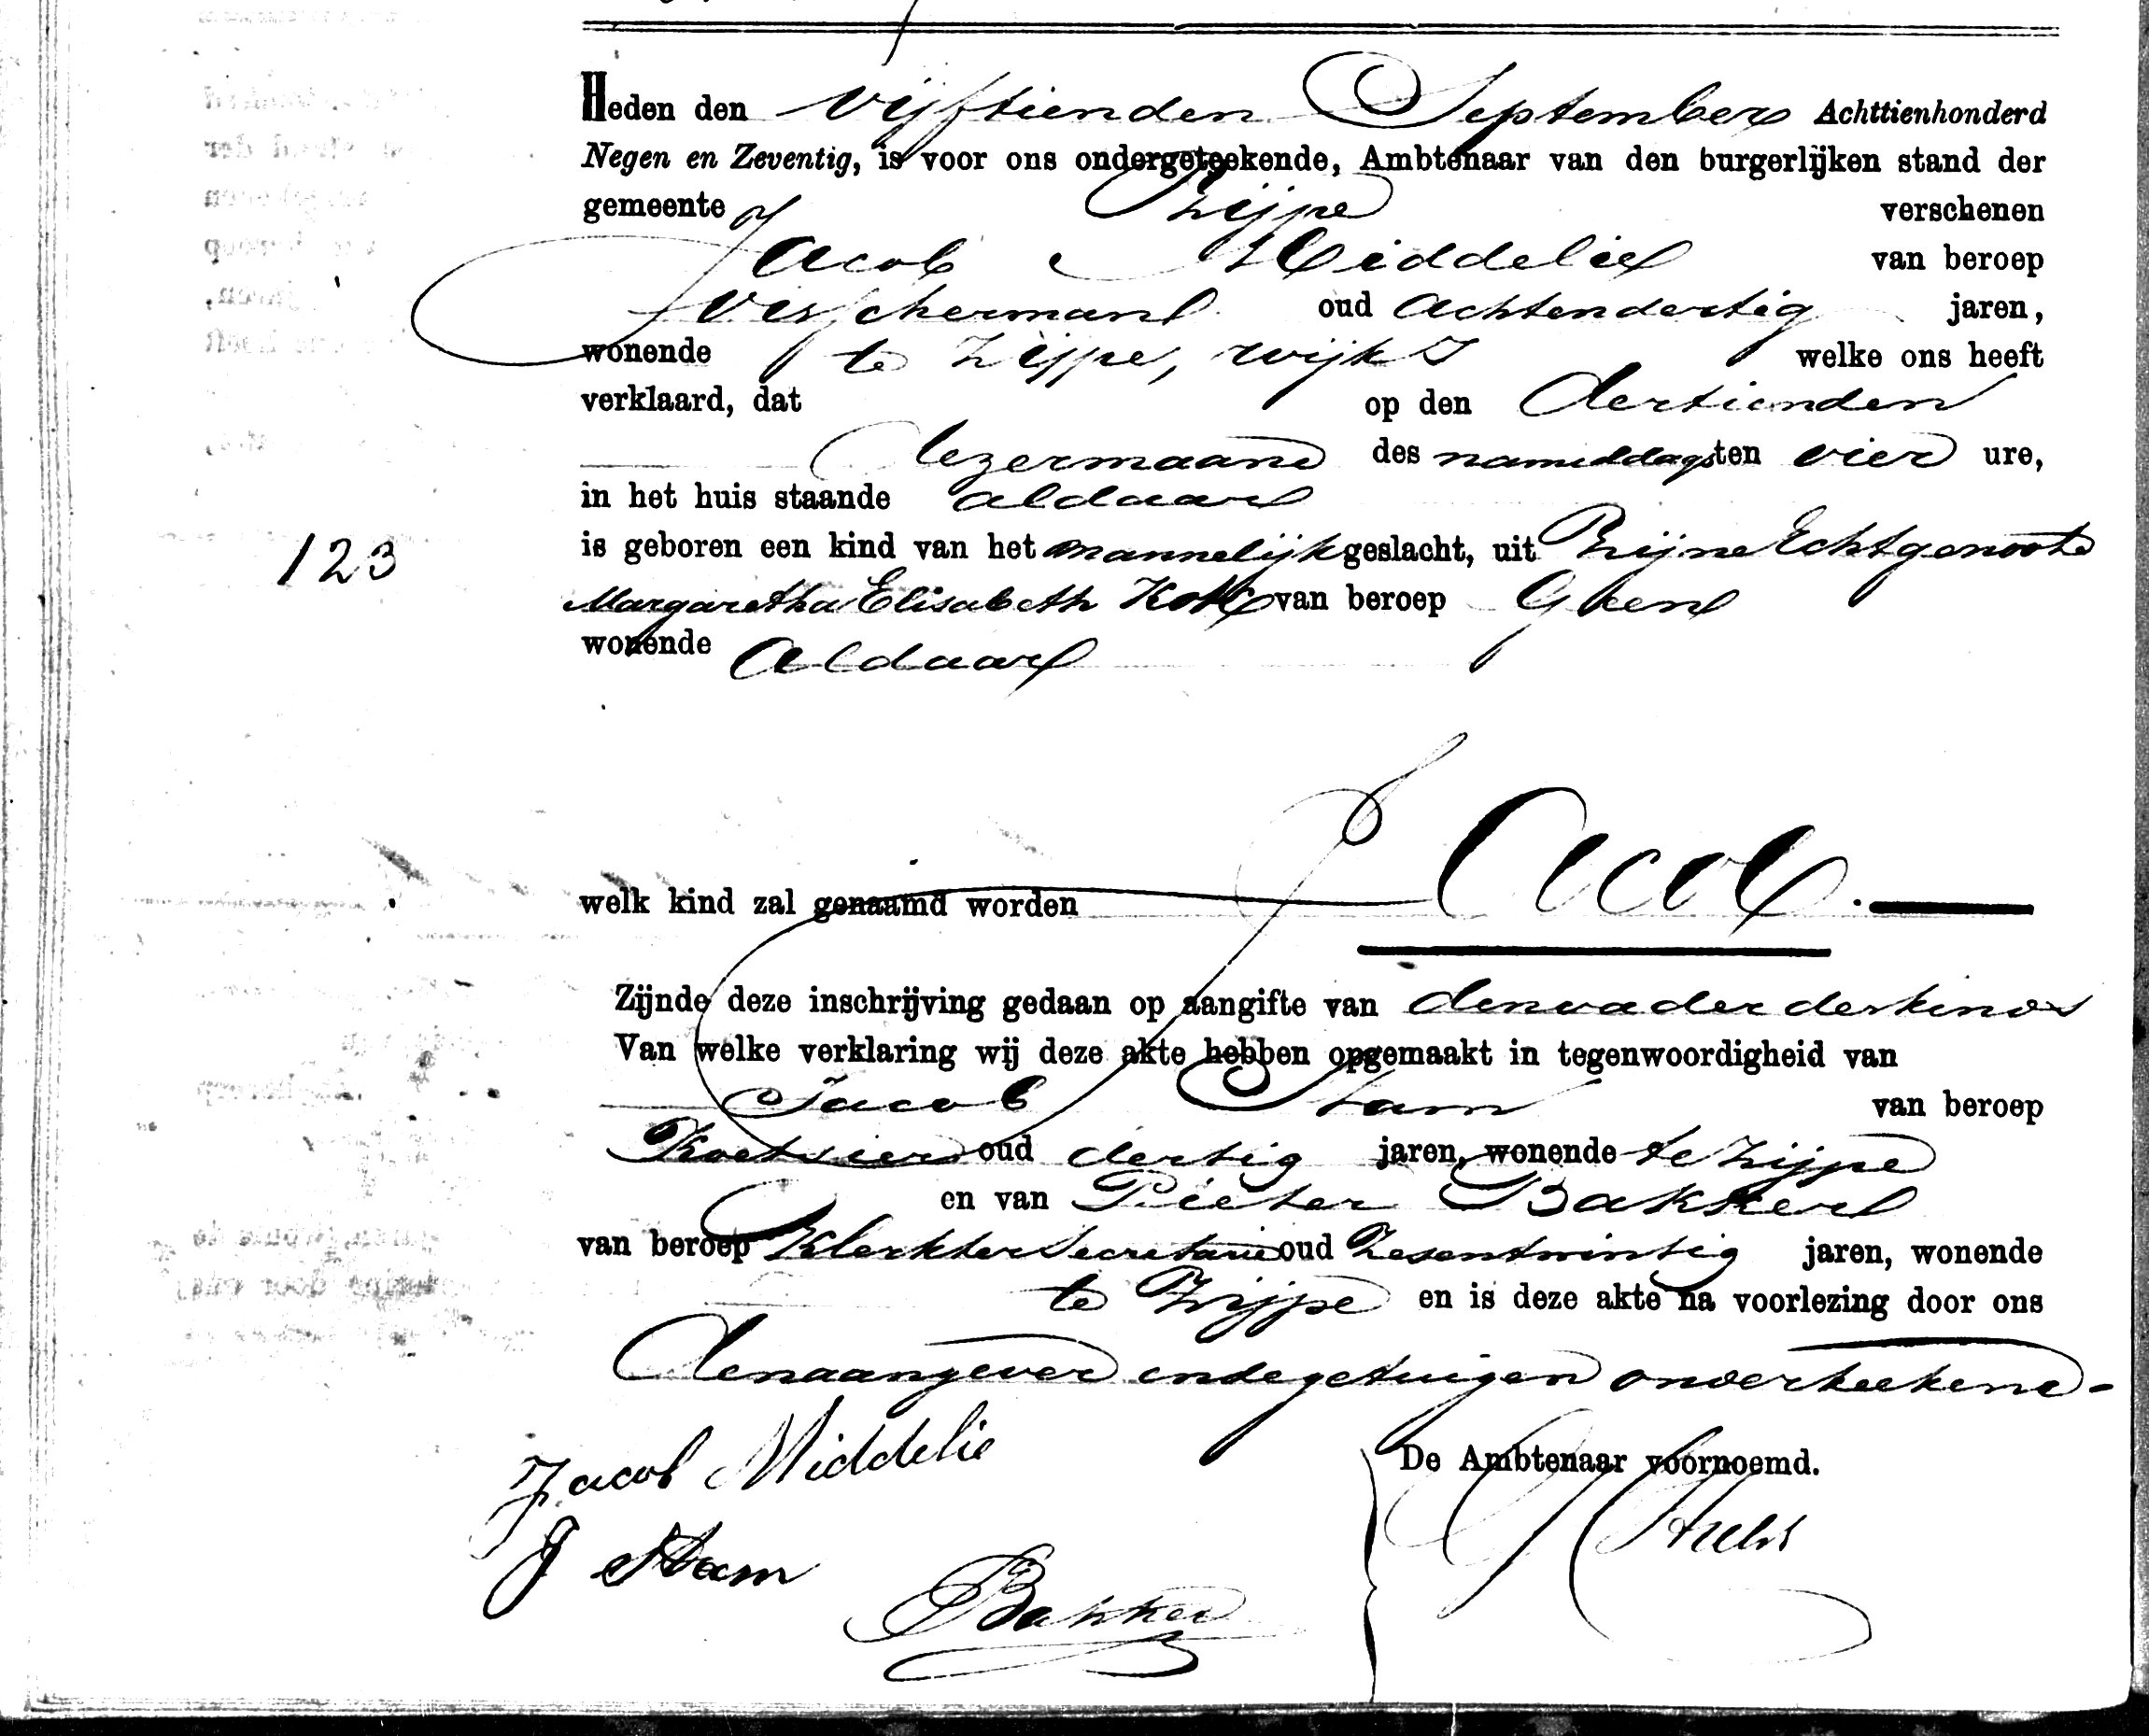 Heden den vijftienden September Achttienhonderd
Negen en Zeventig, is voor ons ondergeteekende, Ambtenaar van den burgerlijken stand der
gemeente Zijpe verschenen
Jacob Middelie van beroep
Visscherman oud achtendertig jaren,
wonende te Zijpe, wijk welke ons heeft
verklaard, dat op den dertienden
dezermaand des namiddags ten vier ure,
in het huis staande aldaar
123
is geboren een kind van het mannelijk geslacht, uit Zijne Echtgenoote
Margaretha Elisabeth van beroep Geen
wonende Aldaar
welk kind zal genaamd worden Jacob.
Zijnde deze inschrijving gedaan op aangifte van den vader des kinds
Van welke verklaring wij deze akte hebben opgemaakt in tegenwoordigheid van
Jacob Stam van beroep
Koetsier oud dertig jaren, wonende te Zijpe
en van Pieter Bakker
van beroep Klerk ter Secretarie oud Zesentwintig jaren, wonende
te Zijpe en is deze akte na voorlezing door ons
den aangever en de getuigen onderteekend.
Jacob Middelie
De Ambtenaar voornoemd.
J Stam
PBakker